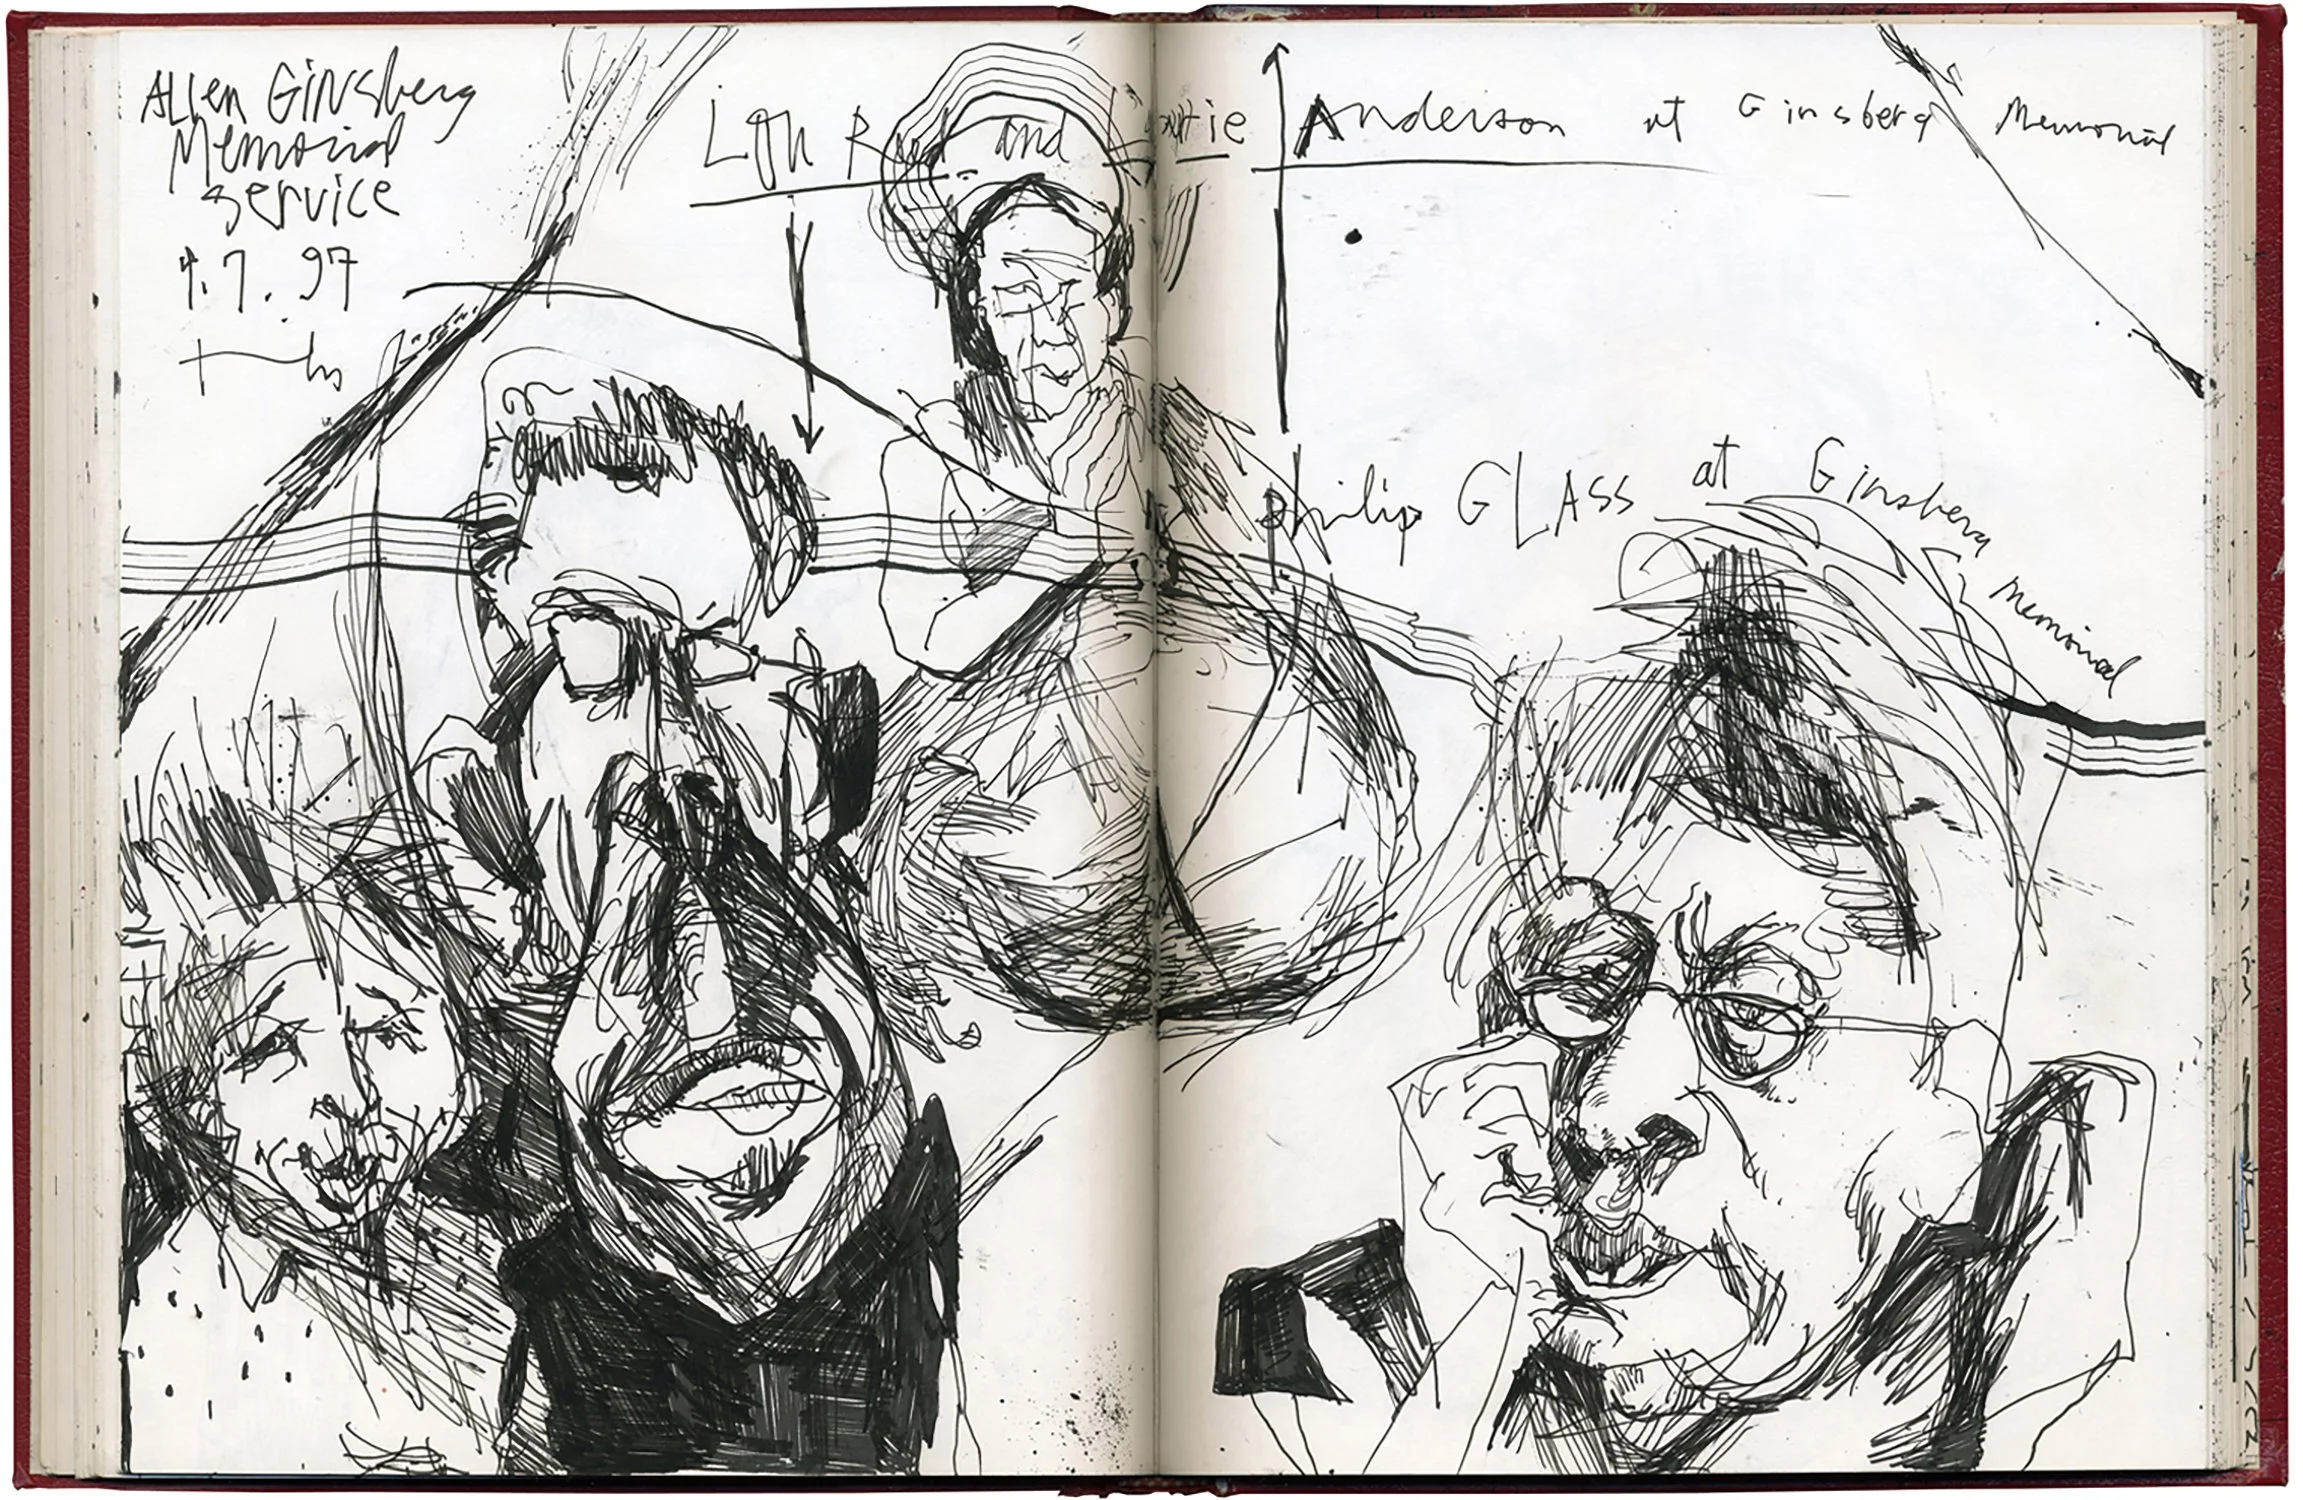 Allen Ginsberg
Memorial
service
4.7.97
Lou Reed and Laurie Anderson at Ginsberg Memorial
Philip GLASS at Ginsberg Memorial